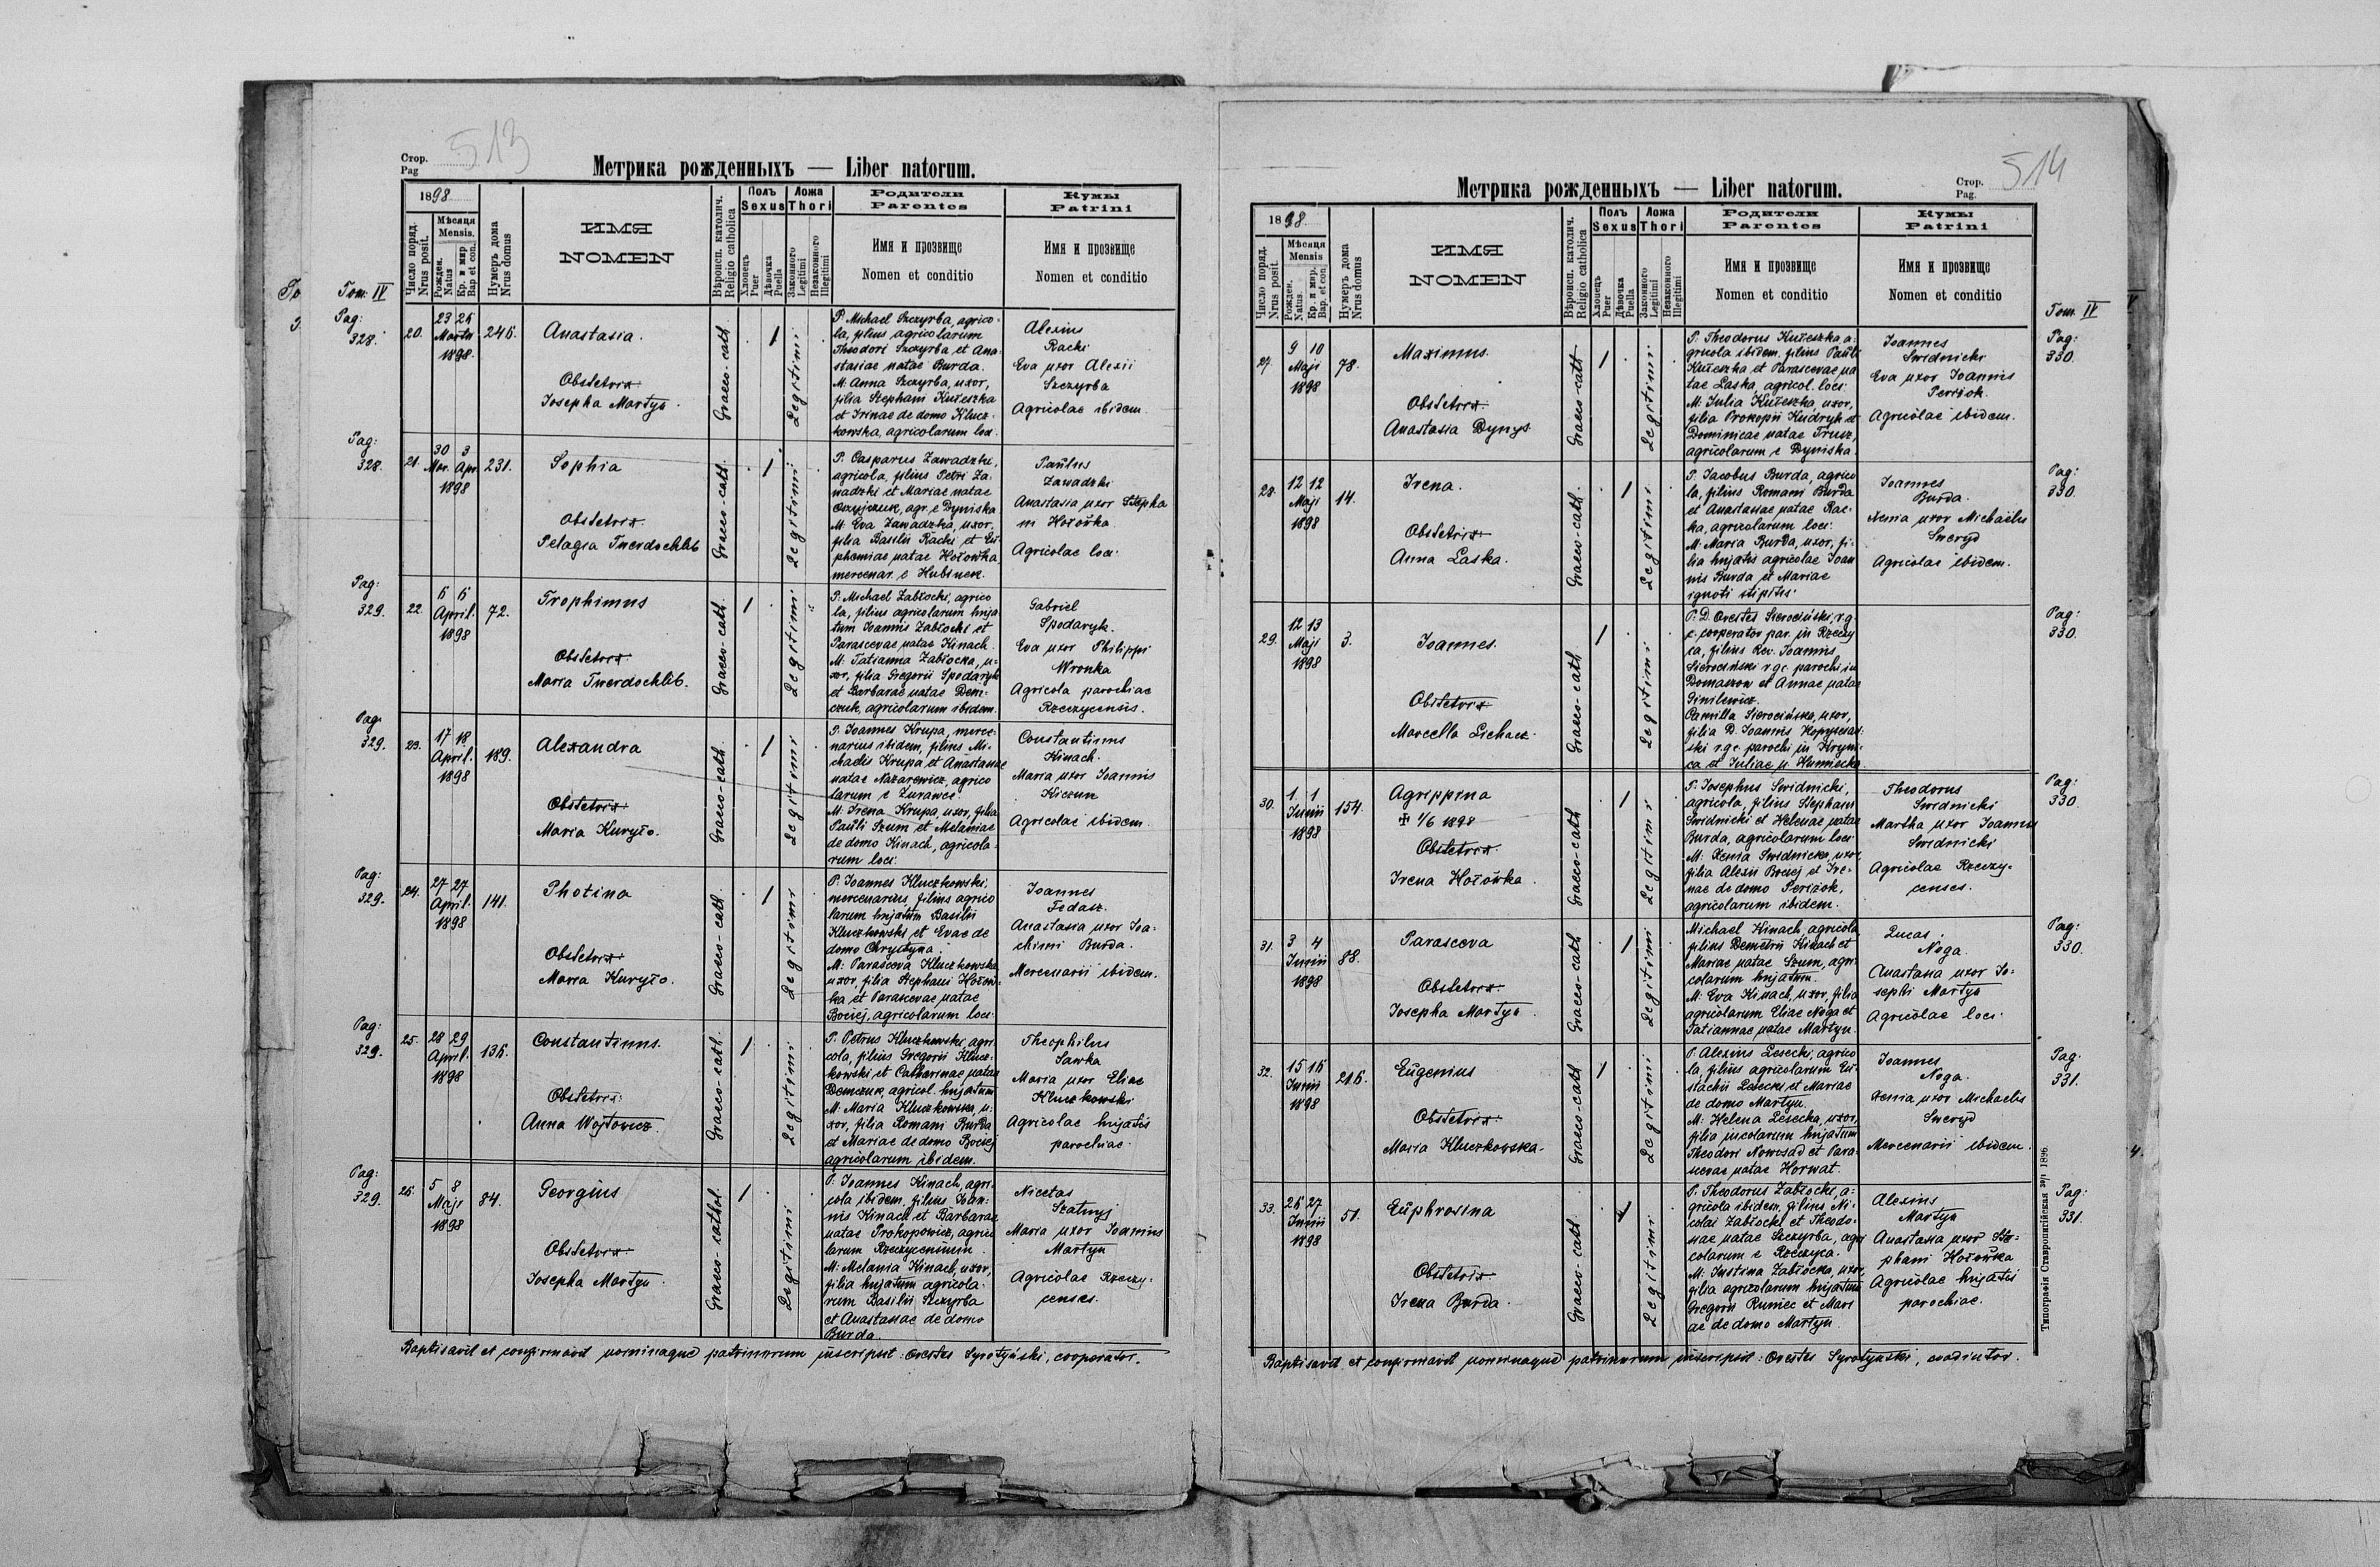 Стор.
Pag
513
Метрика рожденныхъ — Liber natorum.
1898
Число поряд.
Nrus posit.
Мѣсяця
Mensis.
Рожден.
Natus
Кр. и мир
Bap et con.
Нумеръ дома
Nrus domus
ИМЯ
NOMEN
Вѣроисп. католич.
Religio catholica
Полъ
Sexus
Хлопець
Puer
Дѣвочка
Puella
Ложа
Thori
Законного
Legitimi
Незаконного
Illegitimi
Родители
Parentes
Имя и прозвище
Nomen et conditio
Кумы
Patrini
Имя и прозвище
Nomen et conditio
Tom: IV
Pag:
328.
20.
23 26
Martii
1898.
246.
Anastasia.
Obstetrix
Josepha Martyn.
Graeco-cath.
1
Legitimi
P: Michael Szczyrba, agrico-
la, filius agricolarum
Theodori Szczyrba et Ana-
stasiae natae Burda.
M: Anna Szczyrba, uxor,
filia Stephani Kułeszka
et Irinae de domo Klucz-
kowska, agricolarum loci.
Alexius
Racki
Eva uxor Alexii
Szczyrba
Agricolae ibidem.
Pag:
328.
21.
30 3
Mar. Apr.
1898
231.
Sophia
Obstetrix
Pelagia Twerdochlib
Graeco-cath.
1
Legitimi
P: Casparus Zawadzki,
agricola, filius Petri Za-
wadzki et Mariae natae
Oszyjczuk, agr. e Dyniska
M: Eva Zawadzka, uxor,
filia Basilii Racki et Eu-
phemiae natae Hołowka
mercenar. e Hubinek.
Paulus
Zawadzki
Anastasia uxor Stepha
ni Hołowka
Agricolae loci.
Pag:
329.
22.
6 6
April.
1898
72.
Trophimus
Obstetrix
Maria Twerdochlib.
Graeco-cath.
1
Legitimi
P: Michael Zabłocki, agrico
la, filius agricolarum huja
tum Joannis Zabłocki et
Parascevae natae Kinach.
M: Tatianna Zabłocka, u-
xor, filia Gregorii Spodaryk
et Barbarae natae Dem-
czuk, agricolarum ibidem.
Gabriel
Spodaryk.
Eva uxor Philippi
Wronka
Agricola parochiae
Rzeczycensis.
Pag:
329.
23.
17 18
April.
1898
189.
Alexandra
Obstetrix
Maria Kuryło.
Graeco-cath.
1
Legitimi
P: Joannes Krupa, merce-
narius ibidem, filius Mi-
chaelis Krupa et Anastasiae
natae Nazarewicz, agrico
larum e Zurawce
M: Irena Krupa, uxor, filia
Pauli Szum et Melaniae
de domo Kinach, agricola-
rum loci.
Constantinus
Kinach.
Maria uxor Joannis
Kiczun
Agricolae ibidem.
Pag:
329.
24.
27 27
April.
1898
141.
Photina
Obstetrix
Maria Kuryło.
Graeco-cath.
1
Legitimi
P: Joannes Kluczkowski,
mercenarius, filius agrico
larum hujatum Basilii
Kluczkowski et Evae de
domo Chrystyna.
M: Parasceva Kluczkowska
uxor, filia Stephani Hołow-
ka et Parascevae natae
Bociej, agricolarum loci.
Joannes
Fedasz.
Anastasia uxor Joa-
chimi Burda.
Mercenarii ibidem.
Pag:
329.
25.
28 29
April.
1898
136.
Constantinus.
Obstetrix:
Anna Wojtowicz.
Graeco-cath.
1
Legitimi
P: Petrus Kluczkowski, agri-
cola, filius Gregorii Klucz-
kowski et Catharinae natae
Demczuk, agricol. hujatum
M: Maria Kluczkowska, u-
xor, filia Romani Burda
et Mariae de domo Bociej
agricolarum ibidem.
Theophilus
Sawka
Maria uxor Eliae
Kluczkowski
Agricolae hujatis
parochiae.
Pag:
329.
26.
5 8
Maji
1898
84.
Georgius
Obstetrix
Josepha Martyn.
Graeco-cathol.
1
Legitimi
P: Joannes Kinach, agri-
cola ibidem, filius Joan-
nis Kinach et Barbarae
natae Prokopowicz, agrico
larum Rzeczycensium.
M: Melania Kinach, uxor,
filia hujatum agricola-
rum Basilii Szczyrba
et Anastasiae de domo
Burda.
Nicetas
Szatnyj
Maria uxor Joannis
Martyn
Agricolae Rzeczy-
censes.
Baptisavit et confirmavit nominaque patrinorum inscripsit: Orestes Syrotyński, cooperator.
Метрика рожденныхъ — Liber natorum.
Стор.
Pag.
514
1898.
Число поряд.
Nrus posit.
Мѣсяця
Mensis
Рожден.
Natus.
Кр. и мир.
Bap. et con
Нумеръ дома
Nrus domus
ИМЯ
NOMEN
Вѣроисп. католич.
Religio catholica
Полъ
Sexus
Хлопець
Puer
Дѣвочка
Puella
Ложа
Thori
Законного
Legitimi
Незаконного
Illegitimi
Родители
Parentes
Имя и прозвище
Nomen et conditio
Кумы
Patrini
Имя и прозвище
Nomen et conditio
Tom: IV
27.
9 10
Maji
1898
78.
Maximus.
Obstetrix
Anastasia Dynys
Graeco-cath
1
Legitimi
P: Theodorus Kułeszka a-
gricola ibidem, filius Pauli
Kułeszka et Parascevae na
tae Laska, agricol. loci.
M: Julia Kułeszka, uxor,
filia Prokopii Kudryk et
Dominicae natae Trusz,
agricolarum e Dyniska.
Joannes
Swidnicki
Eva uxor Joannis
Periżok.
Agricolae ibidem.
Pag:
330.
28.
12 12
Maji
1898
14.
Irena.
Obstetrix
Anna Laska.
Graeco-cath.
1
Legitimi
P: Jacobus Burda, agrico
la, filius Romani Burda
et Anastasiae natae Rac-
ka, agricolarum loci.
M: Maria Burda, uxor, fi-
lia hujatis agricolae Joan
nis Burda et Mariae
ignoti stipitis.
Joannes
Burda.
Xenia uxor Michaelis
Sweryd
Agricolae ibidem.
Pag:
330.
29.
12 13
Maji
1898
3.
Joannes.
Obstetrix
Marcella Lichacz.
Graeco-cath
1
Legitimi
P: D. Orestes Sierociński, r.g.
c. cooperator par. in Rzeczy
ca, filius Rev. Joannis
Sierociński r.gc. parochi in
Domaszow et Annae natae
Ginilewicz.
Camilla Sierocińska, uxor,
filia D. Joannis
ski r.gc. parochi in Kryni-
ca et Juliae n. Kumiecka.
Pag:
330.
30.
1 1
Junii
1898
154.
Agrippina
✠ 1/6 1898
Obstetrix.
Irena Hołowka.
Graeco-cath
1
Legitimi
P: Josephus Swidnicki,
agricola, filius Stephani
Swidnicki et Helenae natae
Burda, agricolarum loci.
M: Xenia Swidnicka, uxor,
filia Alexii Bociej et Ire-
nae de domo Periżok,
agricolarum ibidem.
Theodorus
Swidnicki
Martha uxor Joannis
Swidnicki
Agricolae Rzeczy-
censes.
Pag:
330.
31.
3 4
Junii
1898
88.
Parasceva
Obstetrix.
Josepha Martyn.
Graeco-cath
1
Legitimi
Michael Kinach, agricola,
filius Demetrii Kinach et
Mariae natae Szum, agri-
colarum hujatum.
M: Eva Kinach, uxor, filia
agricolarum Eliae Noga et
Tatiannae natae Martyn.
Lucas
Noga.
Anastasia uxor Jo-
sephi Martyn
Agricolae loci.
Pag:
330.
32.
15 16
Junii
1898
216.
Eugenius
Obstetrix.
Maria Kluczkowska.
Graeco-cath
1
Legitimi
P: Alexius Lesecki, agrico
la, filius agricolarum Eu-
stachii Lesecki et Mariae
de domo Martyn.
M: Helena Lesecka, uxor,
filia incolarum hujatum
Theodori Nowosad et Para-
scevae natae Horwat.
Joannes
Noga.
Xenia uxor Michaelis
Sweryd
Mercenarii ibidem.
Pag:
331.
33.
26 27
Junii
1898
51.
Euphrosina
Obstetrix
Irena Burda.
Graeco-cath.
1
Legitimi
P: Theodorus Zabłocki, a-
gricola ibidem, filius Ni-
colai Zabłocki et Theodo-
siae natae Szczyrba, agri
colarum e Rzeczyca.
M: Justina Zabłocka, uxor,
filia agricolarum hujatum
Gregorii Rumiec et Mari
ae de domo Martyn.
Alexius
Martyn
Anastasia uxor Ste-
phani Hołowka
Agricolae hujatis
parochiae.
Pag:
331.
Типографія Ставропигійская 1896
Baptisavit et confirmavit nominaque patrinorum inscripsit: Orestes Syrotyński, coadiutor.